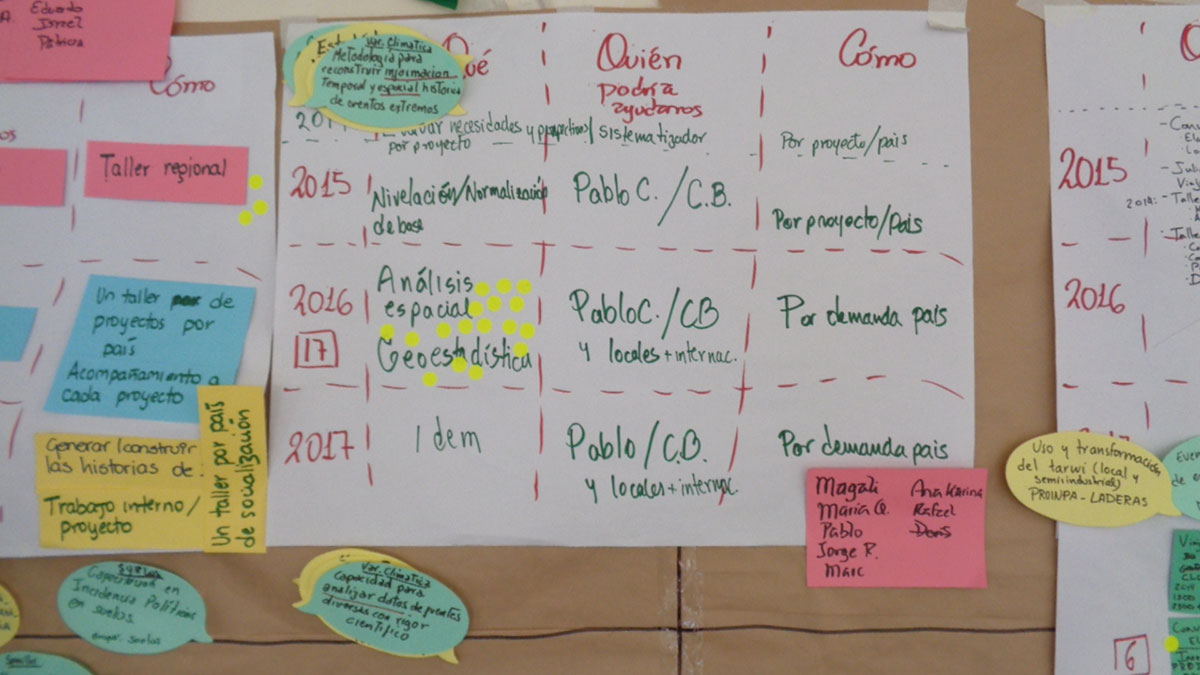 Eduardo
Ismel
Patricia
Cómo
Taller regional
Un taller de
proyectos por
país
Acompañamiento a
cada proyecto
Generar/construir
las historias de
Trabajo interno/
proyecto
Un taller por país
de socialización
Var. Climatica
Metodología para
reconstruir información
Temporal y espacial historica
de eventos extremos
Qué
Quién
podría
ayudarnos
Cómo
necesidades y
por proyecto
/sistematizador
Por proyecto/pais
2015
Nivelación/Normalización
de base
Pablo C./C.B.
Por proyecto/Pais
2016
17
Análisis
espacial
Geoestadística
Pablo C./CB
y locales + internac.
Por demanda pais
2017
Idem
Pablo/C.B.
y locales + internac.
Por demanda pais
Magali
María Q.
Pablo
Jorge R.
Marc
Ana Karina
Rafael
Doris
Var. Climatica
Capacidad para
analizar datos de fuentes
diversas con rigor
científico
Capacitación en
Incidencia Politicas
en suelos
2015
2014:
2016
Uso y transformación
del tarwi (local y
semiindustrial)
PROINPA-LADERAS
6